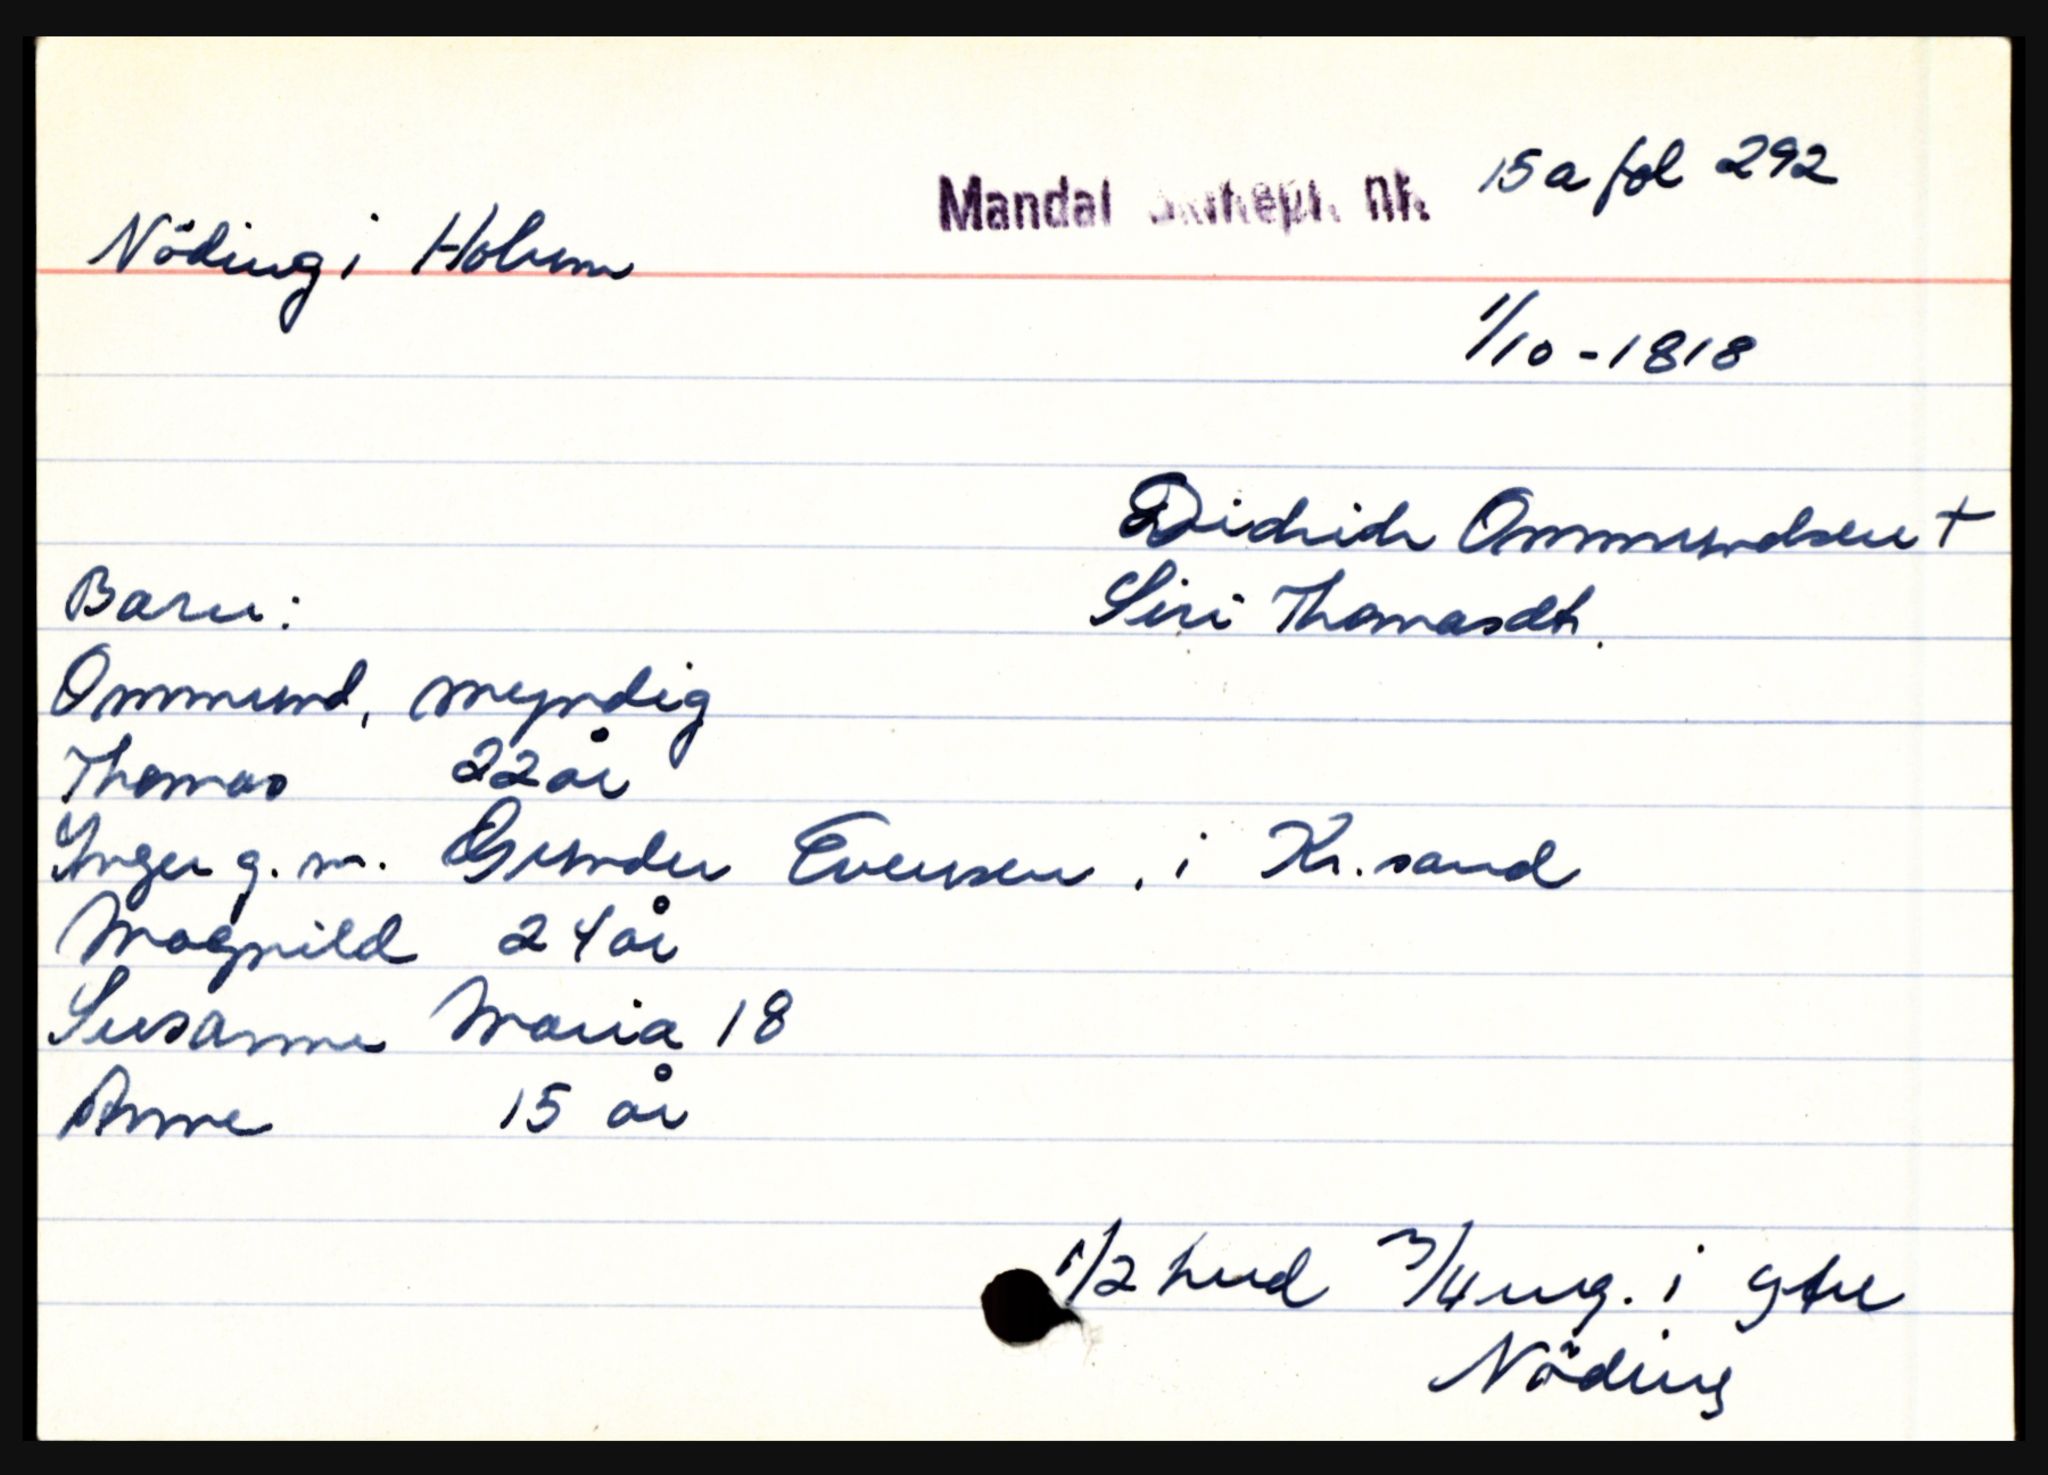 Mandal Skiftepr. nr. 15a fol 292
Nöding i Holum
1/10-1818
Didrich Ommundsen +
Barn: Siri Thomasdt.
Ommund, myndig
Thomas 22 år
Inger g. m. Gunder Evensen, i Kr.sand
Magnild 24 år
Susanne Maria 18
Anne 15 år
1/2 hud 3/4 eng. i gfre
Nöding